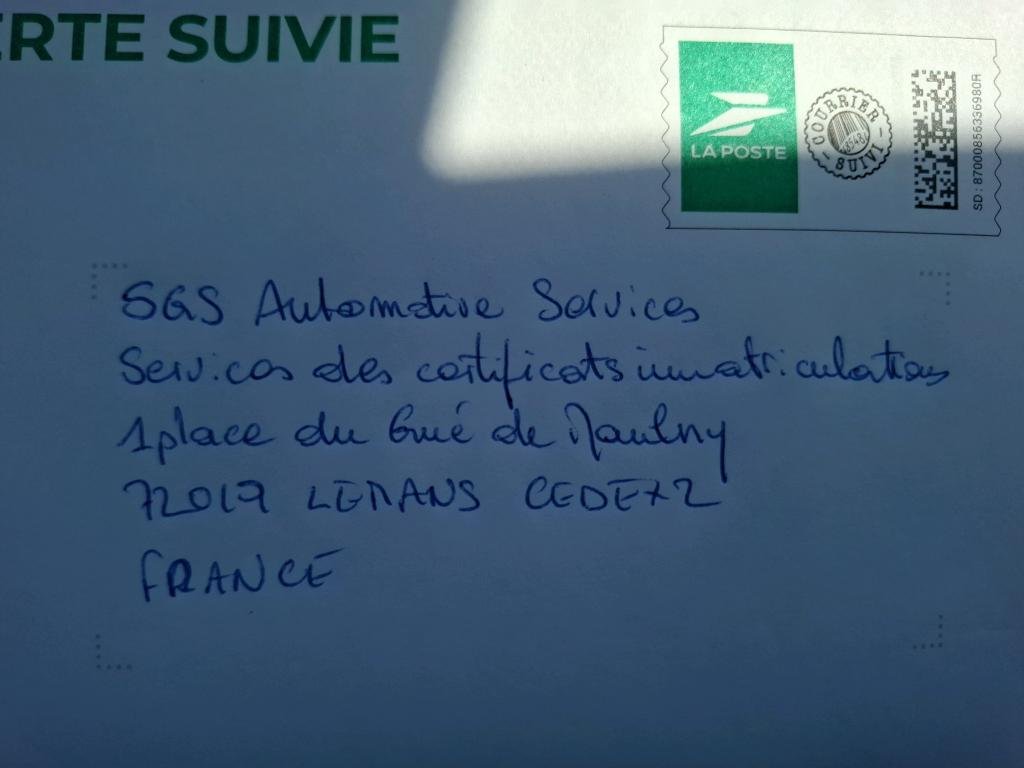 ERTE SUIVIE
LA POSTE
COURRIER
SUIVI
SD : 87000856336980A
SGS Automotive Services
Services des certificats immatriculations
1 place du Gué de Maulny
72019 LE MANS CEDEX 2
FRANCE